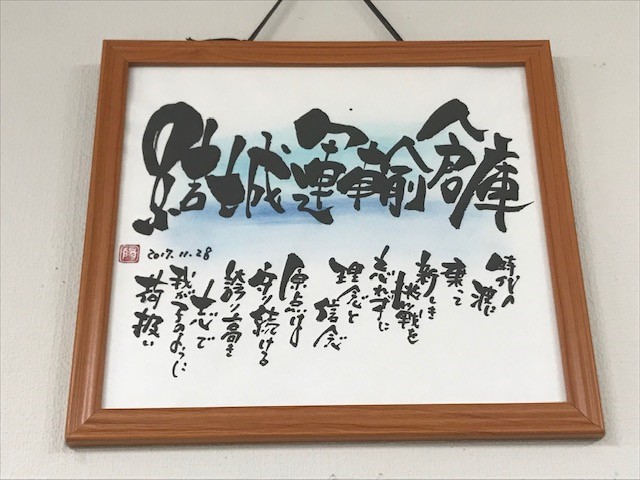 結城運輸倉庫
時代の
波に
乗って
新しき
挑戦を
忘れずに
理念と
信念
原点は
守り続ける
誇り高き
志で
我が子のように
荷扱い
2017.11.28